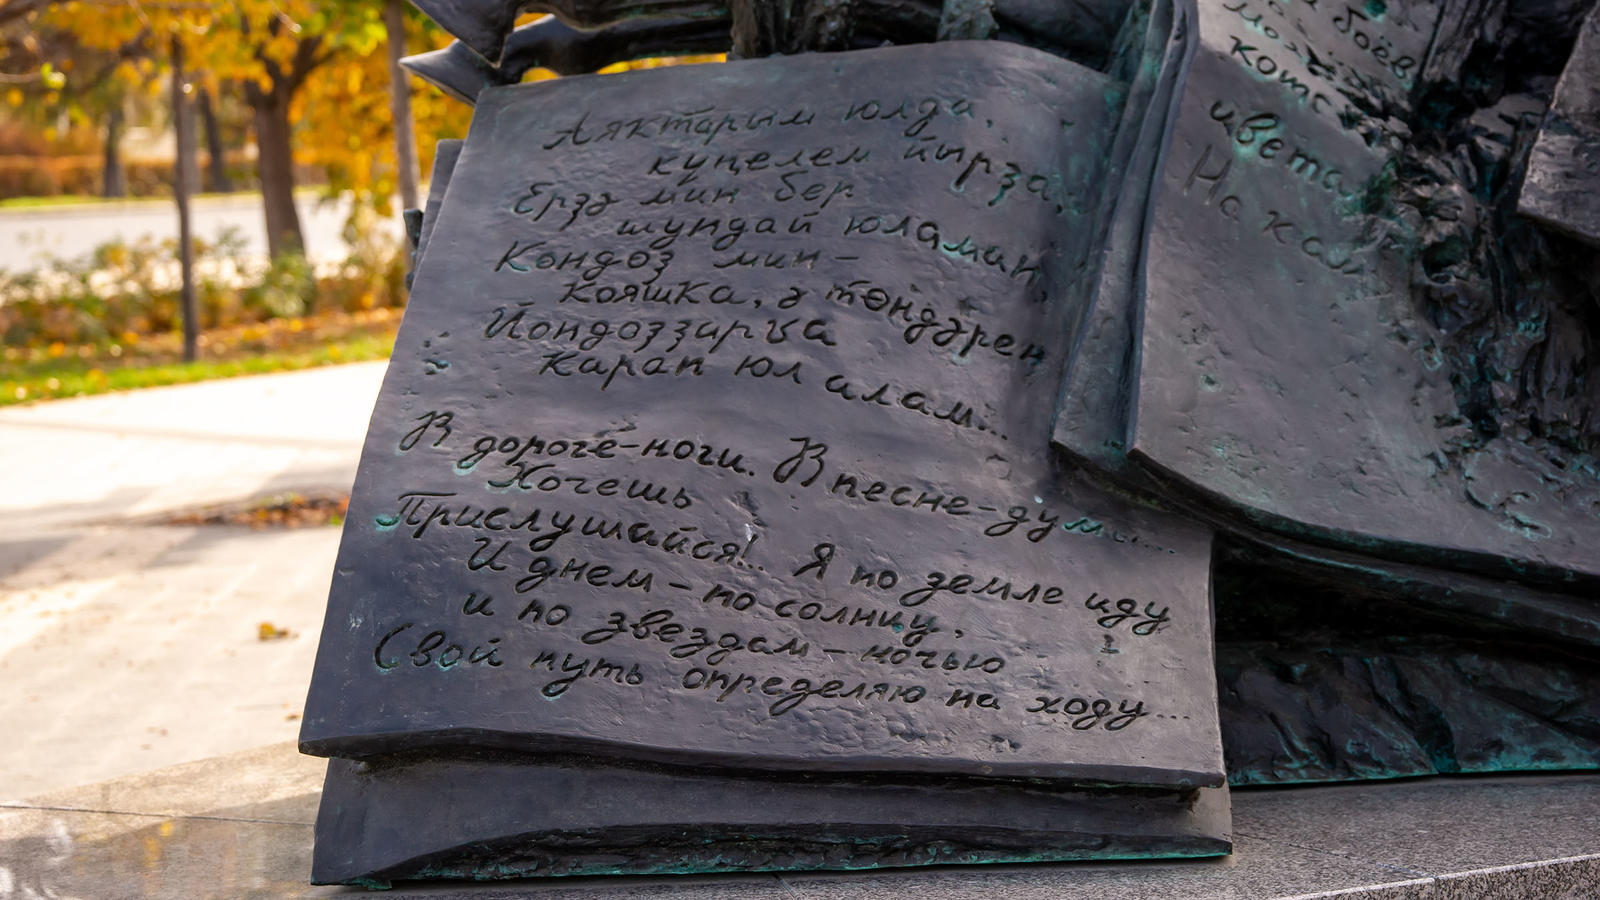 Аяктарым юлда,
күңелем йырҙа,
Ерҙә мин бер
шундай юламан,
Көндөҙ мин –
Кояшка, ә төндәрен
Йондоҙҙарға
карап юл алам...
В дороге-ноги. В песне-думы...
Хочешь
Прислушайся!.. Я по земле иду
И днем – по солнцу,
и по звездам – ночью
Свой путь определяю на ходу...
боёв
цвета
На кам